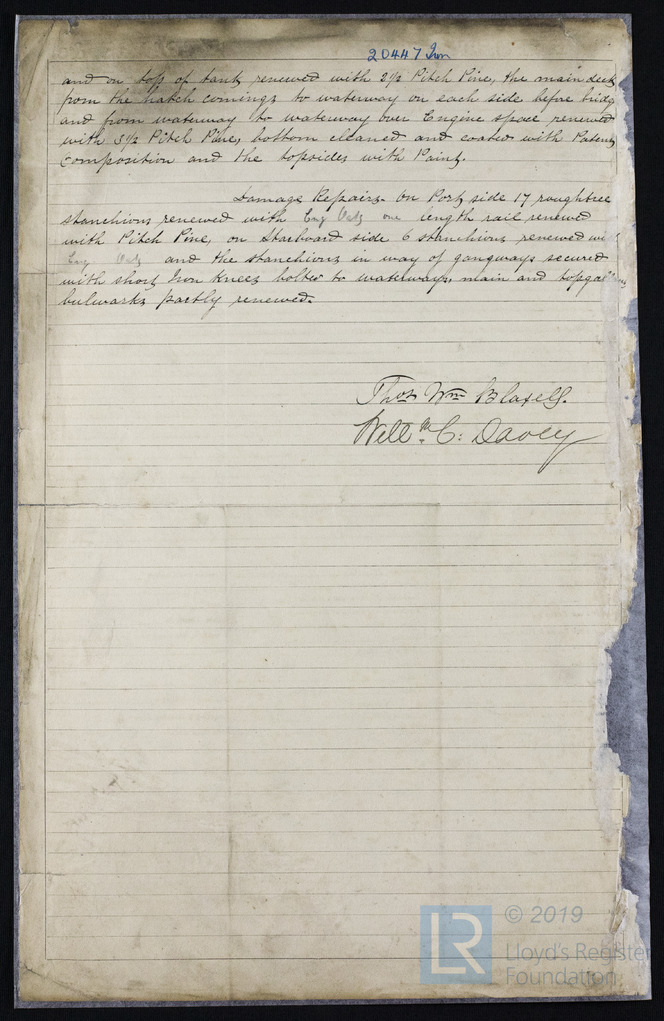 20447 Iron
and on top of tank renewed with 2½ Pitch Pine, the main deck
from the hatch comings to waterway on each side before bridge
and from waterway to waterway over Engine space renewed
with 3½ Pitch Pine, bottom cleaned and coated with Patent
Composition and the topsides with Paint.
Damage Repairs. On Port side 17 roughtree
stanchions renewed with Eng Oak one length rail renewed
with Pitch Pine, on Starboard side 6 stanchions renewed wi
Eng Oak and the stanchions in way of gangways secured
with short Iron knees bolted to waterways, main and topgallant
bulwarks partly renewed.
Thos Wm Blaxell.
Willm C: Davey
LR © 2019
Lloyd's Register
Foundation